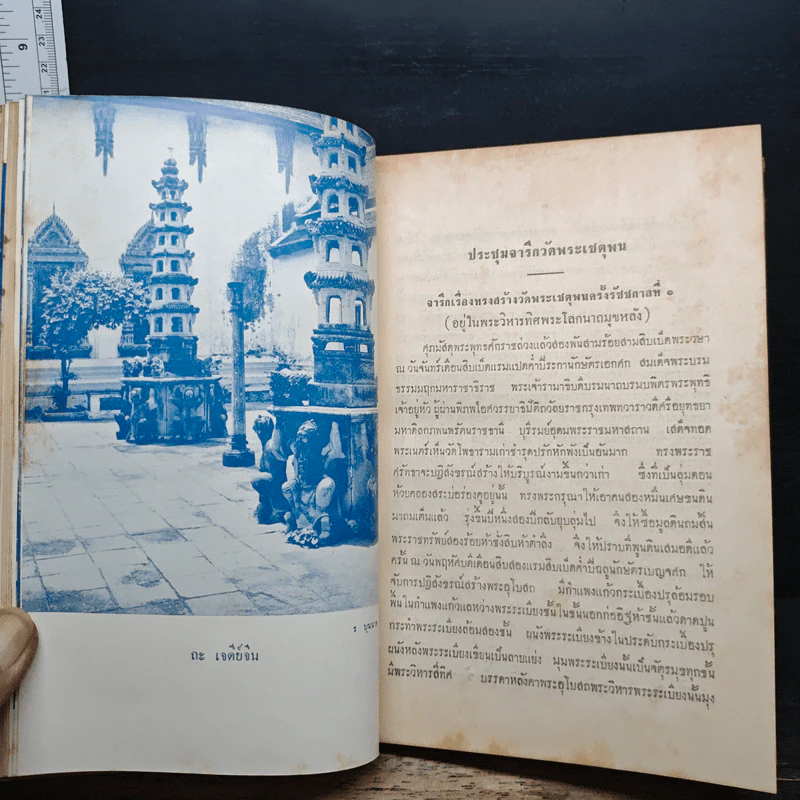 9
24
23
22
21
ร. บุนนาค
ถะ เจดีย์จีน
ประชุมจารึกวัดพระเชตุพน
จารึกเรื่องทรงสร้างวัดพระเชตุพนครั้งรัชชกาลที่ ๑
(อยู่ในพระวิหารทิศพระโลกนาถมุขหลัง)
ศุภมัสดุพระพุทธศักราชล่วงแล้วสองพันสามร้อยสามสิบเบ็ดพระวษา
ณ วันจันทร์เดือนสิบเบ็ดแรมแปดค่ำปีระกานักษัตรเอกศก สมเด็จพระบรม
ธรรมมฤกมหาราชาธิราช พระเจ้ารามาธิบดิบรมนารถบรมบพิตรพระพุทธิ
เจ้าอยู่หัว ผู้ผ่านพิภพไอศวรรยาธิปัติถวัลยราชกรุงเทพทวาราวดีศรีอยุทธยา
มหาดิลกภพนพรัตนราชธานี บุรีรมย์อุดมพระราชมหาสถาน เสด็จทอด
พระเนตร์เห็นวัดโพธารามเก่าชำรุดปรักหักพังเป็นอันมาก ทรงพระราช
ศรัทธาจะปฏิสังขรณ์สร้างให้บริบูรณ์งามขึ้นกว่าเก่า ซึ่งที่เป็นลุ่มดอน
ห้วยคลองสระบ่อร่องคูอยู่นั้น ทรงพระกรุณาให้เอาคนสองหมื่นเศษขนดิน
มาถมเต็มแล้ว รุ่งขึ้นปีหนึ่งสองปีกลับยุบลุ่มไป จึงให้ซื้อมูลดินถมสิ้น
พระราชทรัพย์สองร้อยห้าชั่งสิบห้าตำลึง จึงให้ปราบที่พูนดินเสมอดีแล้ว
ครั้น ณ วันพฤหัศบดีเดือนสิบสองแรมสิบเบ็ดค่ำปีฉลูนักษัตรเบญจศก ให้
จับการปฏิสังขรณ์สร้างพระอุโบสถ มีกำแพงแก้วกระเบื้องปรุล้อมรอบ
พื้นในกำแพงแก้วแลหว่างพระระเบียงชั้นในชั้นนอกก่ออิฐห้าชั้นแล้วดาดปูน
กระทำพระระเบียงล้อมสองชั้น ผนังพระระเบียงข้างในประดับกระเบื้องปรุ
ผนังหลังพระระเบียงเขียนเป็นลายแย่ง มุมพระระเบียงนั้นเป็นจัตุรมุขทุกชั้น
มีพระวิหารสี่ทิศ บรรดาหลังคาพระอุโบสถพระวิหารพระระเบียงนั้นมุง